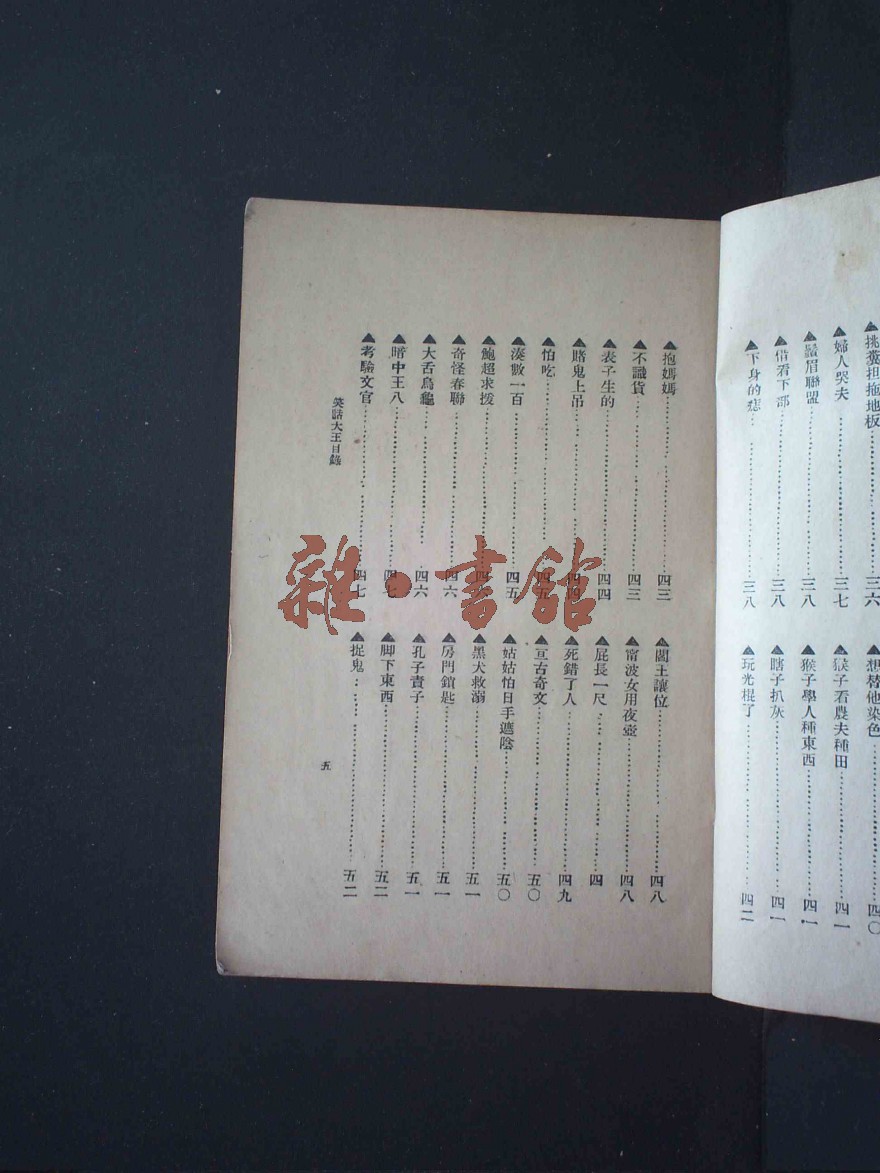 挑糞担拖地板……三六
婦人哭夫……三七
鬚眉聯盟……三八
借看下部……三八
下身的……三八
想替他染色……四〇
猴子看農夫種田……四一
猴子學人種東西……四一
瞎子扒灰……四一
玩光棍了……四二
抱媽媽……四三
不識貨……四三
表子生的……四四
賭鬼上吊……四四
怕吃……四五
湊數一百……四五
鮑超求援……四六
奇怪春聯……四六
大舌烏龜……四六
暗中王八……四七
考驗文官……四七
閻王讓位……四八
甯波女用夜壺……四八
屁長一尺……四
死錯了人……四九
亘古奇文……五〇
姑姑怕日手遮陰……五〇
黑犬救溺……五一
房門鎖匙……五一
孔子責子……五一
脚下東西……五二
捉鬼……五二
笑話大王目錄
五
雜·書館